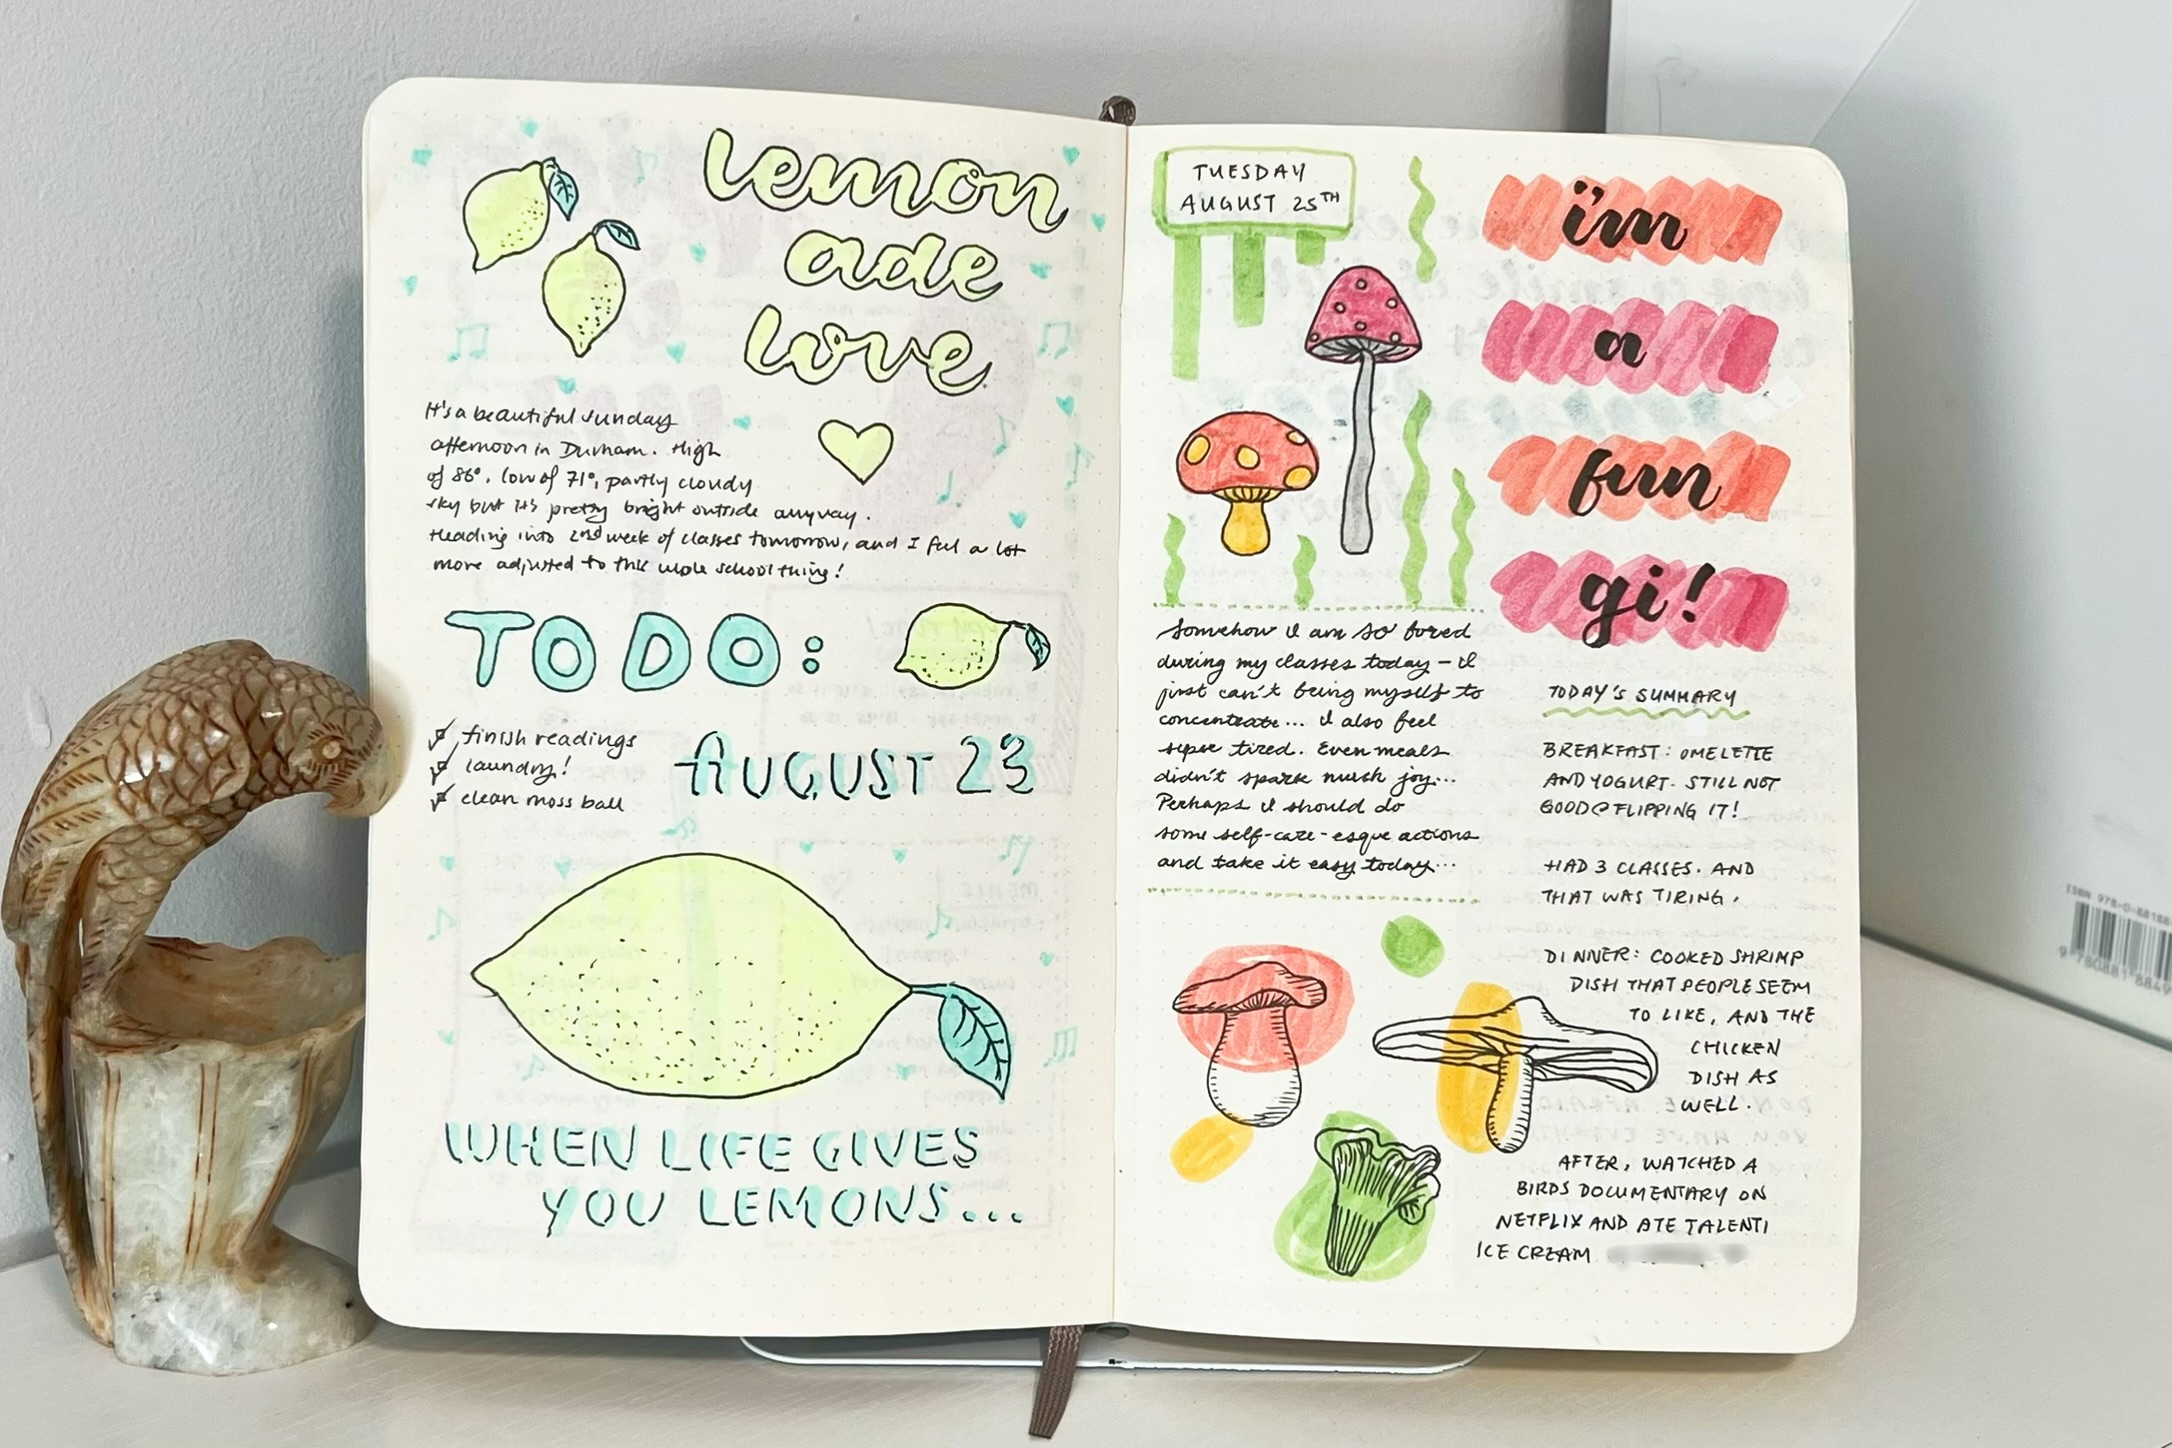 lemon
ade
love
It's a beautiful sunday
afternoon in Durham. High
of 86°, low of 71°, partly cloudy
sky but it's pretty bright outside anyway.
Heading into 2nd week of classes tomorrow, and I feel a lot
more adjusted to this whole school thing!
TODO:
finish readings
laundry!
clean moss ball
AUGUST 23
WHEN LIFE GIVES
YOU LEMONS...
TUESDAY
AUGUST 25TH
i'm
a
fun
gi!
Somehow I am so bored
during my classes today - I
just can't bring myself to
concentrate... I also feel
super tired. Even meals
didn't spark much joy...
Perhaps I should do
some self-care-esque actions
and take it easy today...
TODAY'S SUMMARY
BREAKFAST: OMELETTE
AND YOGURT. STILL NOT
GOOD @ FLIPPING IT!
HAD 3 CLASSES. AND
THAT WAS TIRING.
DINNER: COOKED SHRIMP
DISH THAT PEOPLE SEEM
TO LIKE, AND THE
CHICKEN
DISH AS
WELL.
AFTER, WATCHED A
BIRDS DOCUMENTARY ON
NETFLIX AND ATE TALENTI
ICE CREAM